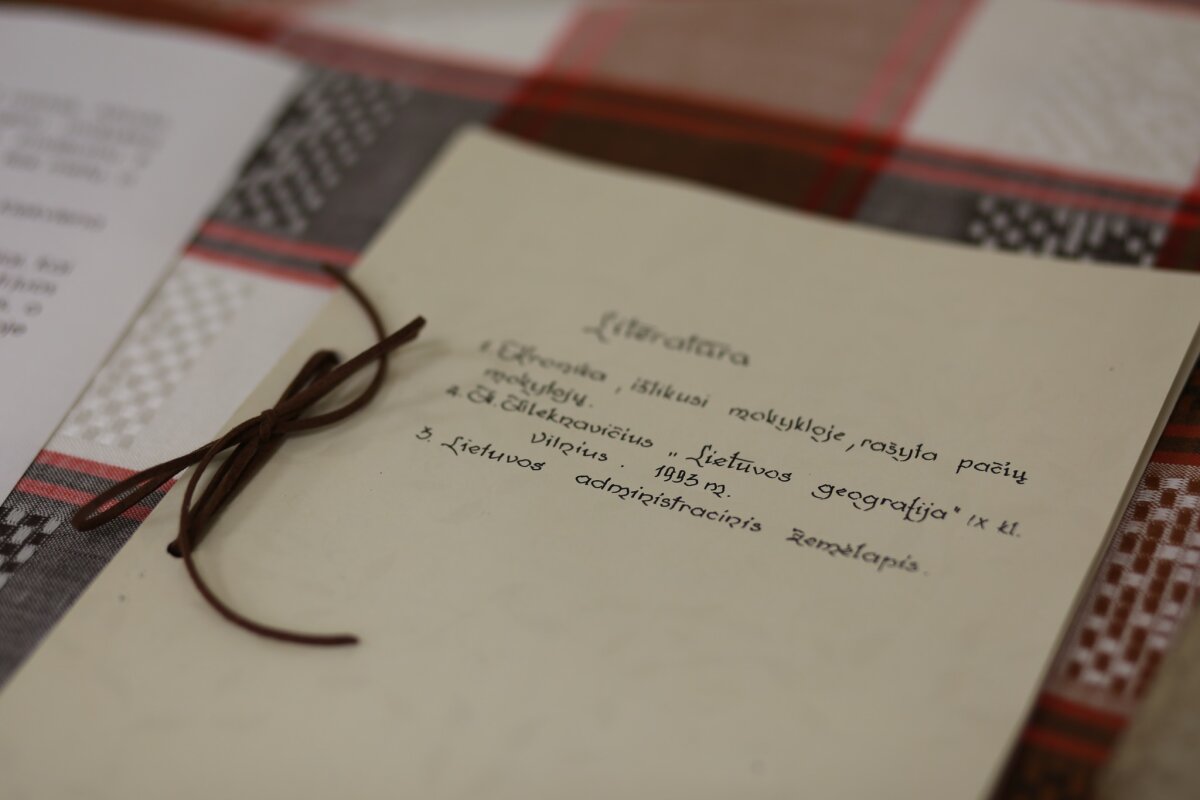 Literatūra
1. Kronika, išlikusi mokykloje, rašyta pačių
mokytojų.
"Lietuvos geografija" IX kl.
Vilnius. 1993 m.
3. Lietuvos administracinis žemėlapis.